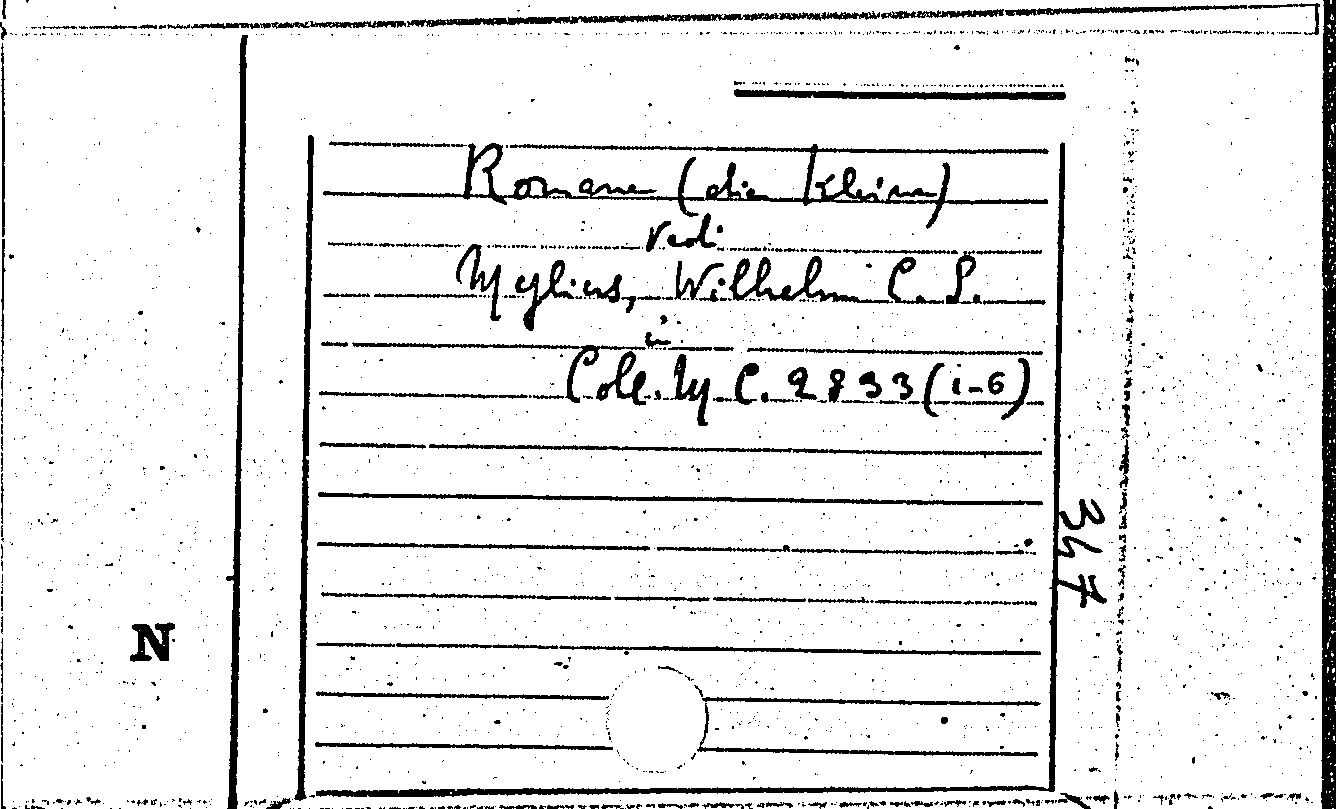 Romane (die kleine)
vedi
Mylius, Wilhelm C. S.
in
Coll. M C. 2833 (1-6)
347
N